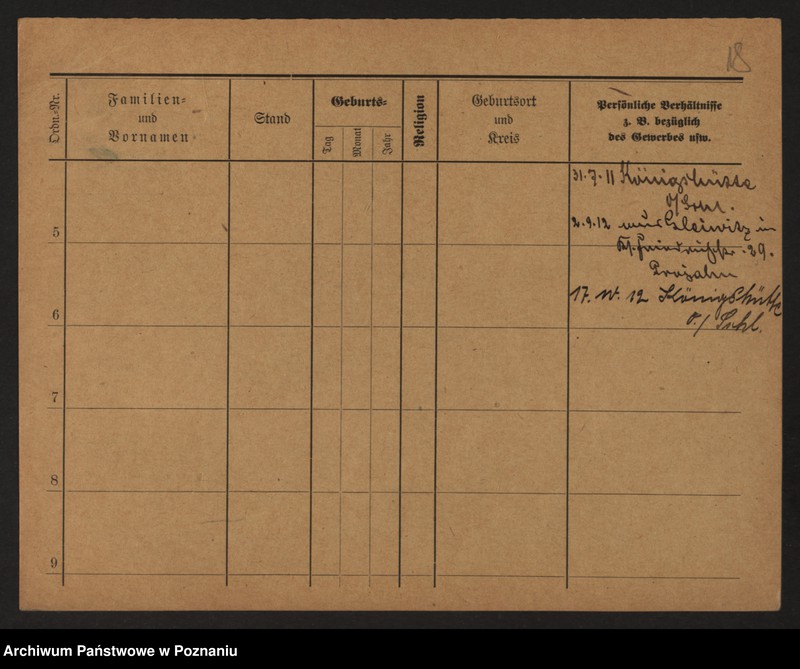 18
Ordn.-Nr.
Familien-
und
Vornamen
Stand
Geburts-
Tag
Monat
Jahr
Religion
Geburtsort
und
Kreis
Persönliche Verhältnisse
z. B. bezüglich
des Gewerbes usw.
31.7.11 Königshütte
O/Schl.
5
2.9.12 Gleiwitz in
29.
6
17. 12 Königshütte
O./Schl.
7
8
9
Archiwum Państwowe w Poznaniu